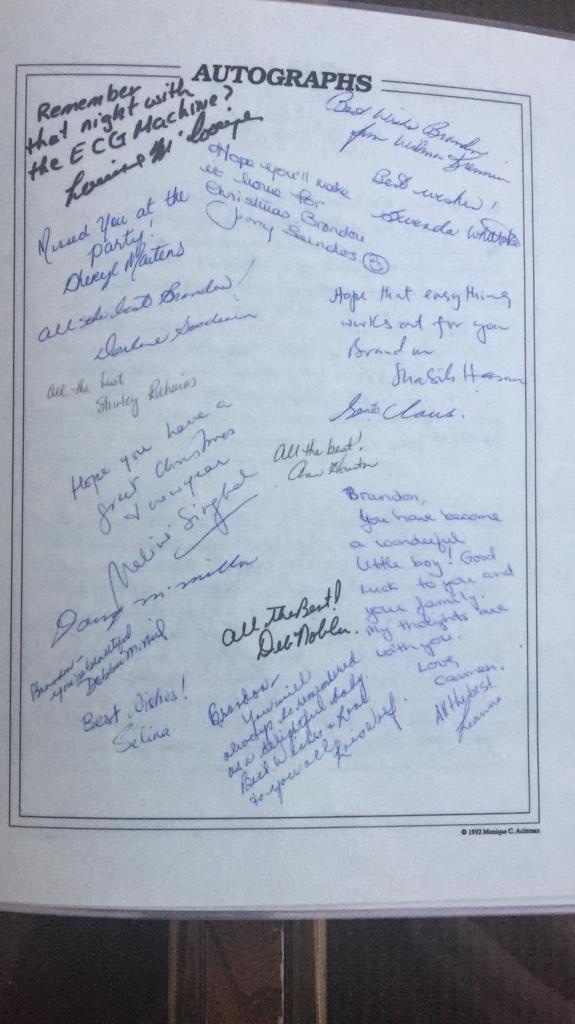 AUTOGRAPHS
Remember
that night with
the ECG Machine?
Best Wishes Brandon
from Wilma
Best wishes!
Hope you'll make
it home for
Christmas Brandon
Missed You at the
Party!
Cheryl Martens
All the best Brandon!
Darlene Goodwin
Hope that everything
works out for you
Brandon
All the best
Shirley
Santa Claus.
Hope you have a
great Christmas
& new year
All the best!
Brandon,
You have become
a wonderful
little boy! Good
luck to you and
your family.
My thoughts are
with you.
Love,
Carmen.
All the Best!
Brandon-
you're beautiful
Best Wishes!
Selina
Brandon
You will
always be remembered
as a delightful baby.
Best Wishes & Love
to you all
All the best
Leanna
© 1992 Monique C. Ackman